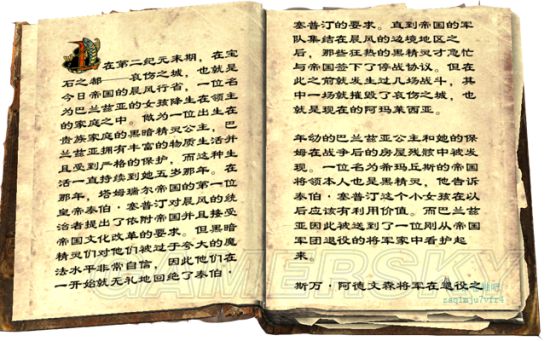 在第二纪元末期，在宝
石之都——哀伤之城，也就是
今日帝国的晨风行省，一位名
为巴兰兹亚的女孩降生在领主
的家庭之中。做为一位出生在
贵族家庭的黑暗精灵公主，巴
兰兹亚拥有丰富的物质生活并
且受到严格的保护，而这种生
活一直持续到她五岁那年。在
那年，塔姆瑞尔帝国的第一位
皇帝泰伯·塞普汀对晨风的统
治者提出了依附帝国并且接受
帝国文化改革的要求。但黑暗
精灵们对他们被过于夸大的魔
法水平非常自信，因此他们在
一开始就无礼地回绝了泰伯·
塞普汀的要求。直到帝国的军
队集结在晨风的边境地区之
后，那些狂热的黑精灵才急忙
与帝国签下了停战协议。但在
此之前就发生过几场战斗，其
中一场就摧毁了哀伤之城，也
就是现在的阿玛莱西亚。
年幼的巴兰兹亚公主和她的保
姆在战争后的房屋残骸中被发
现。一位名为希玛仄斯的帝国
将领本人也是黑精灵，他告诉
泰伯·塞普汀这个小女孩在以
后应该有利用价值。而巴兰兹
亚因此被送到了一位刚从帝国
军团退役的将军家中看护起
来。
斯万·阿德文森将军在退役之
GAMERSKY
zaq1mju7vfr4